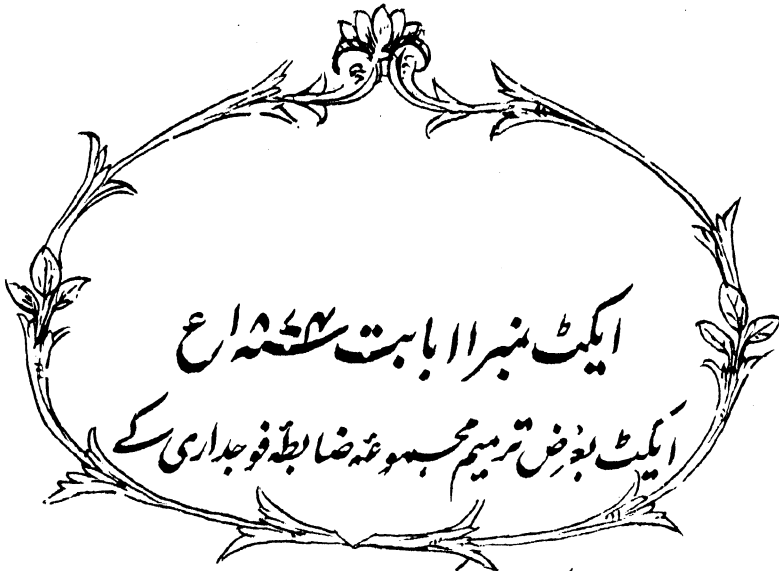 ایکٹ نمبر ۱۱ بابت سنہ ۱۸۷۴ع
ایکٹ بغرض ترمیم مجموعۂ ضابطۂ فوجداری کے